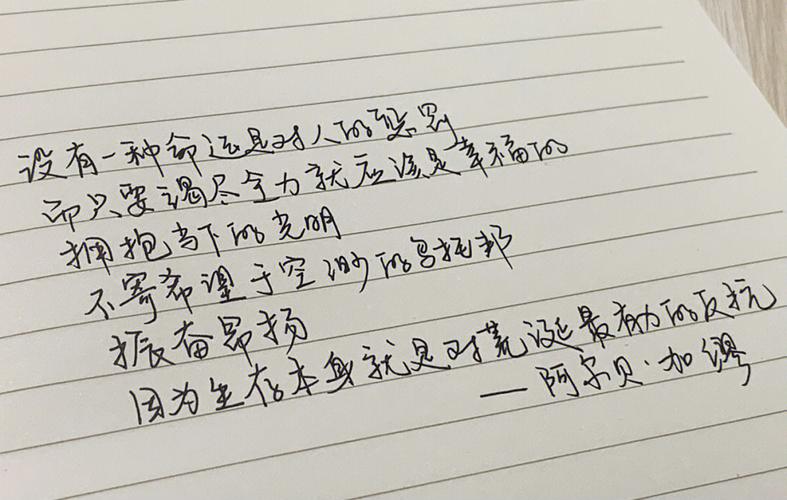 没有一种命运是对人的惩罚
而只要竭尽全力就应该是幸福的
拥抱当下的光明
不寄希望于空渺的乌托邦
振奋昂扬
因为生存本身就是对荒诞最有力的反抗
— 阿尔贝·加缪